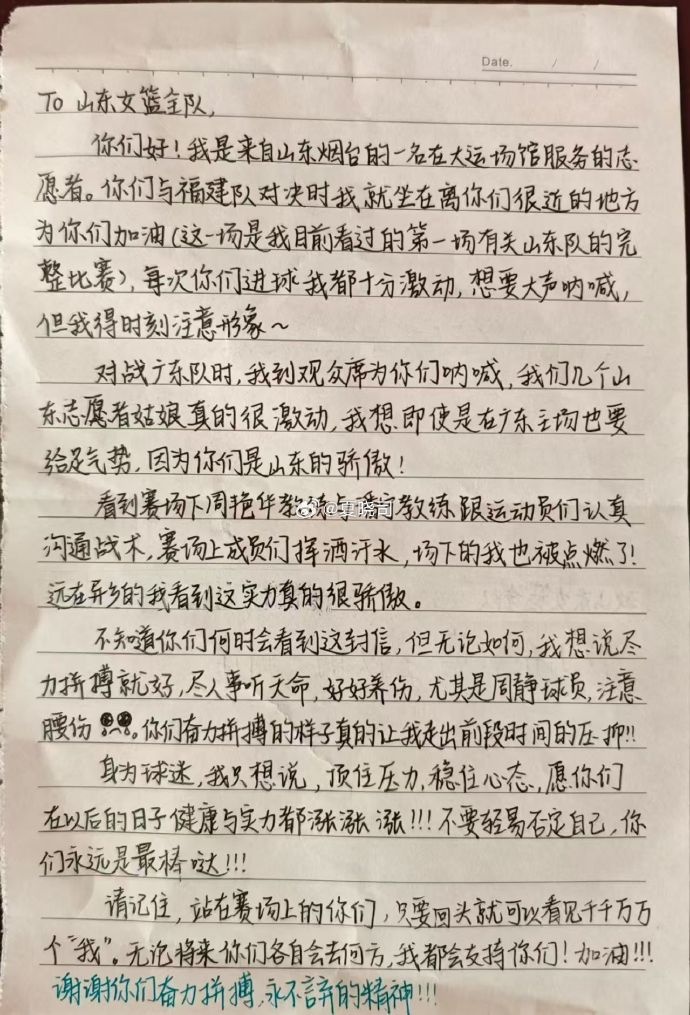 Date. / /
To 山东女篮全队,
你们好!我是来自山东烟台的一名在大运场馆服务的志
愿者。你们与福建队对决时我就坐在离你们很近的地方
为你们加油(这一场是我目前看过的第一场有关山东队的完
整比赛),每次你们进球我都十分激动,想要大声呐喊,
但我得时刻注意形象~
对战广东队时,我到观众席为你们呐喊,我们几个山
东志愿者姑娘真的很激动,我想即使是在广东主场也要
给足气势,因为你们是山东的骄傲!
看到赛场下周艳华教练与 教练跟运动员们认真
@夏晓司
沟通战术,赛场上成员们挥洒汗水,场下的我也被点燃了!
远在异乡的我看到这实力真的很骄傲。
不知道你们何时会看到这封信,但无论如何,我想说尽
力拼搏就好,尽人事听天命,好好养伤,尤其是周静球员,注意
腰伤。你们奋力拼搏的样子真的让我走出前段时间的压抑!!
身为球迷,我只想说,顶住压力,稳住心态,愿你们
在以后的日子健康与实力都涨涨涨!!!不要轻易否定自己,你
们永远是最棒哒!!!
请记住,站在赛场上的你们,只要回头就可以看见千千万万
个“我”。无论将来你们各自会去何方,我都会支持你们!加油!!!
谢谢你们奋力拼搏,永不言弃的精神!!!